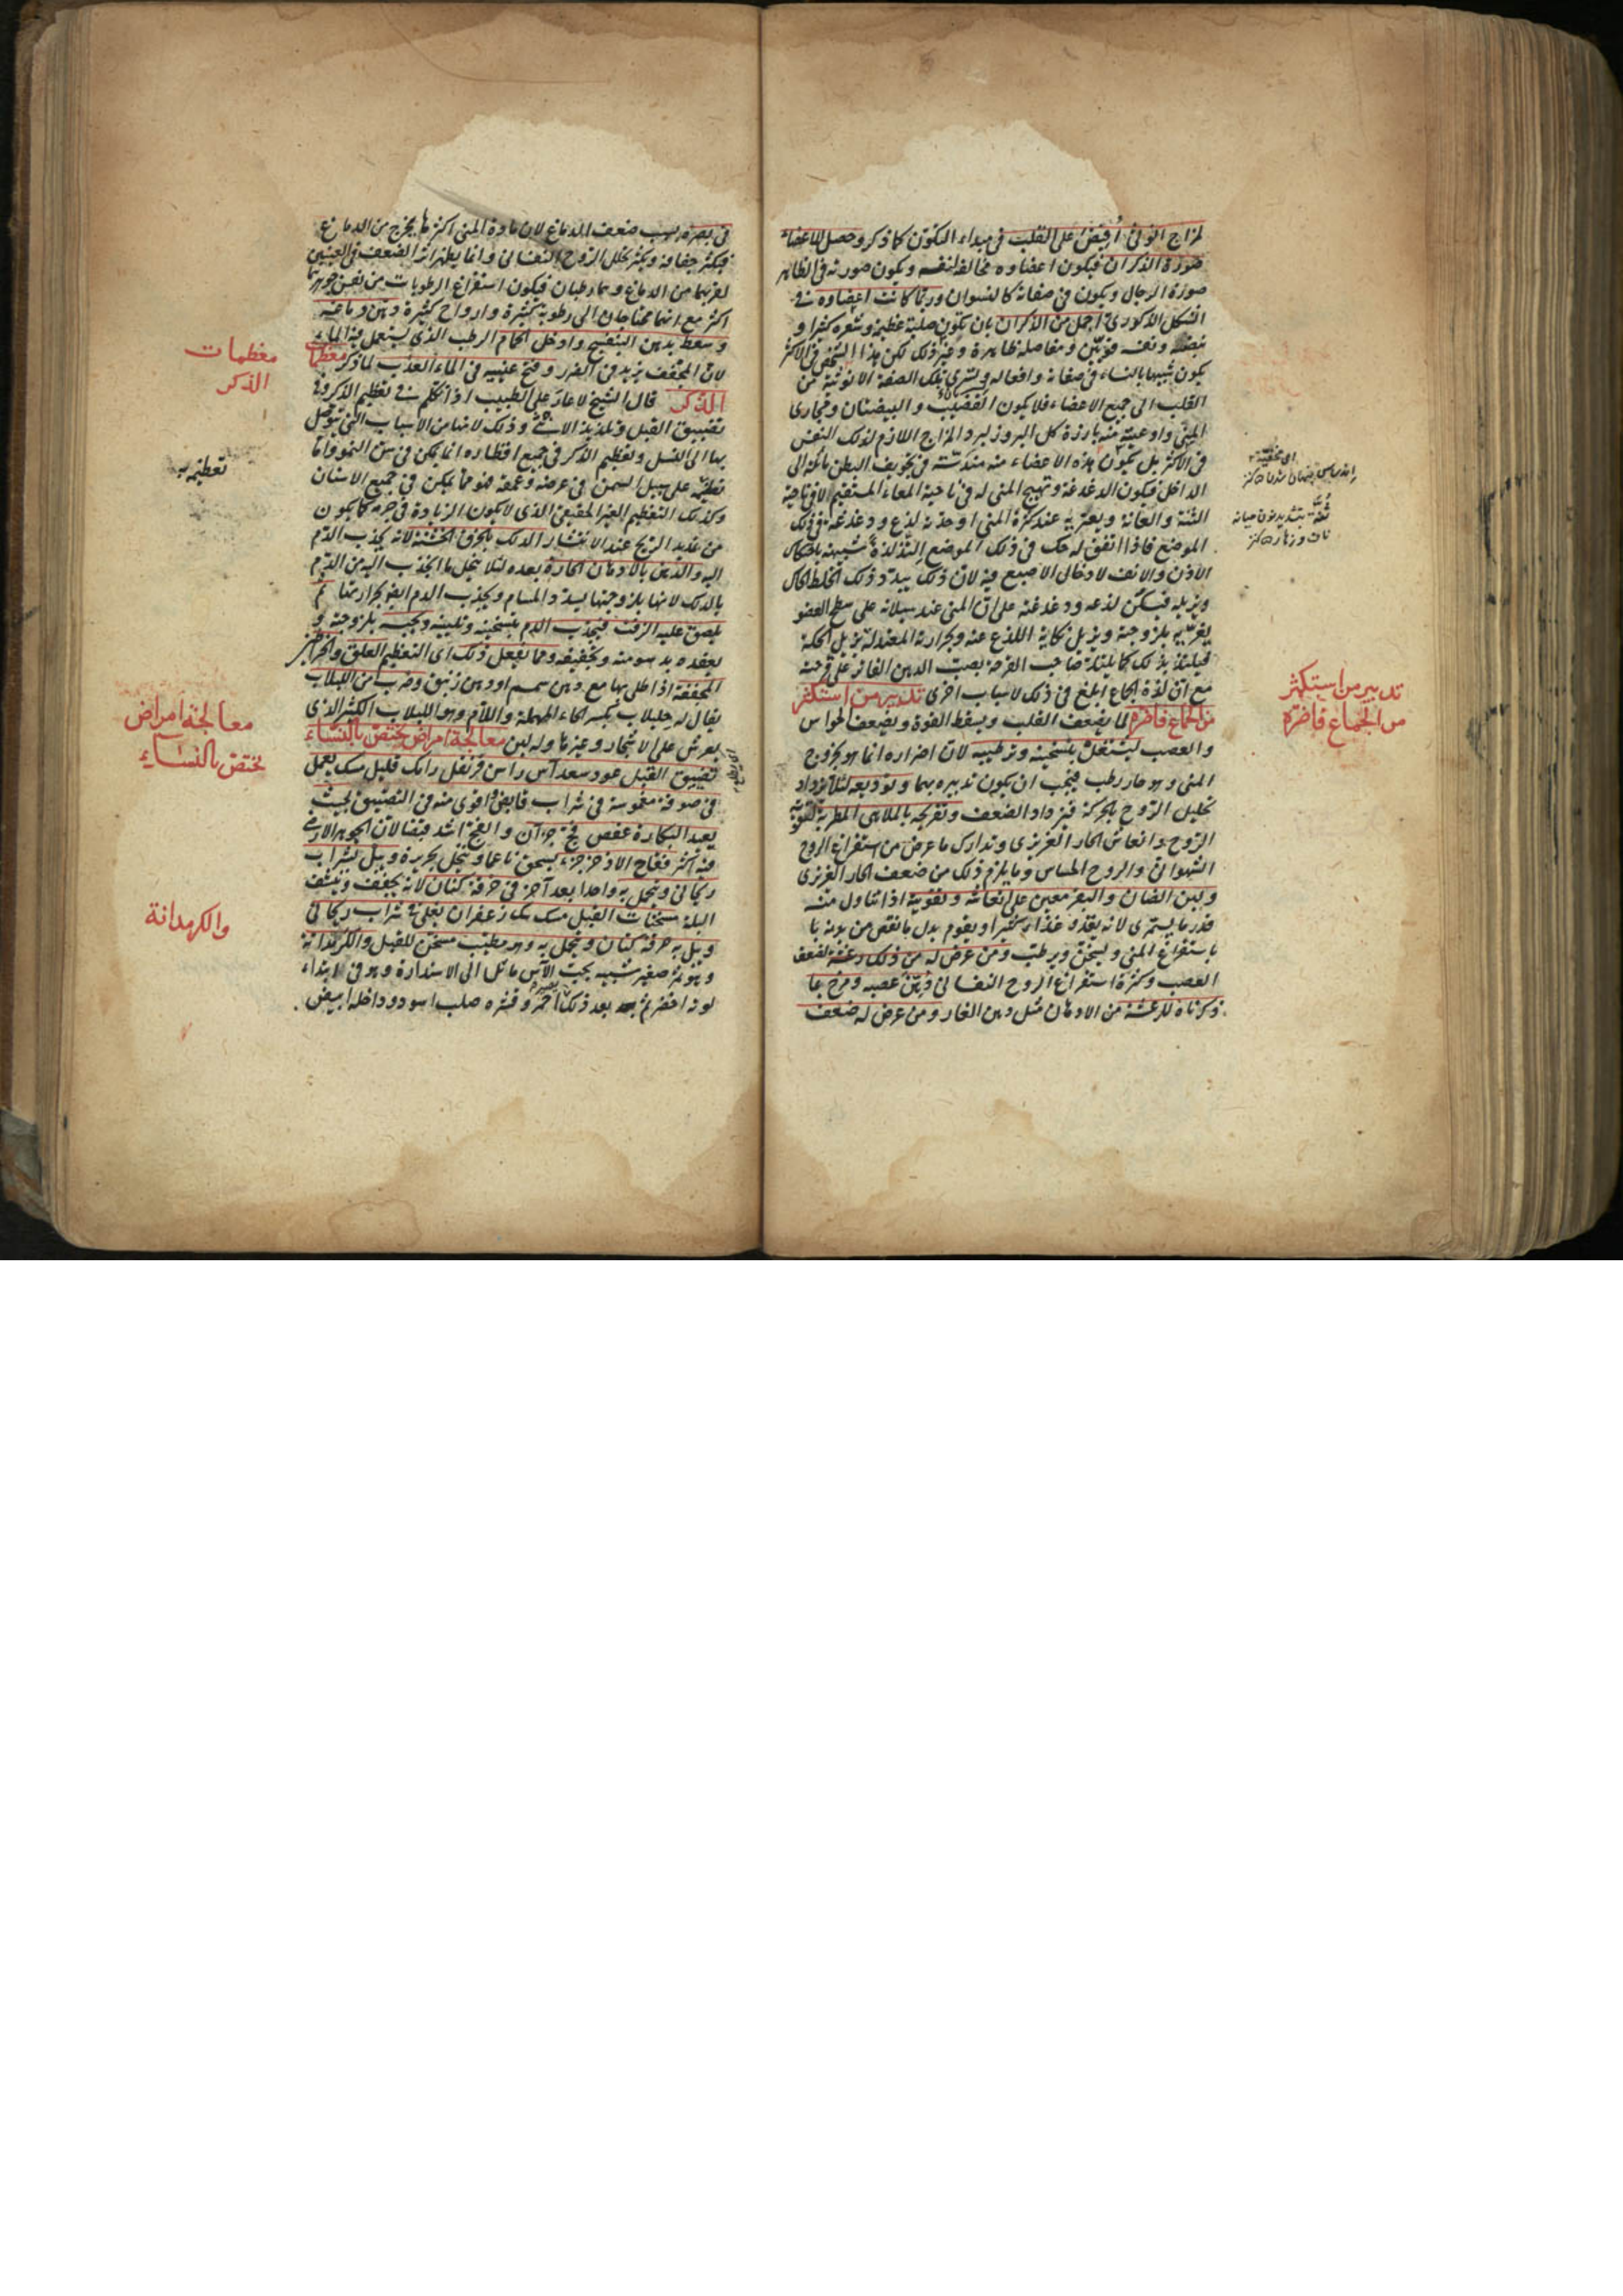 لمزاج انوثى أفيض على القلب فى مبداء التكون كما ذكر وحصل للاعضاء
صورة الذكران فيكون اعضاوه مخالفة لنفسه ويكون صورته فى الظاهر
صورة الرجال ويكون فى صفاته كالنسوان وربما كانت اعضاوه فى
الشكل الذكورى اجمل من الذكران بان يكون صلبة عظيمة وشعره كثيرا و
نبضه ونفسه قويين ومفاصله ظاهرة وغير ذلك لكن هذا الشخص فى الاكثر
يكون شبيها بالنساء فى صفاته وافعاله ويسرى تلك الصفة الانوثية من
القلب الى جميع الاعضاء فلا يكون القضيب والبيضتان ومجارى
المنى واوعيته منه بارزة كل البروز لبرد المزاج اللازم لذلك النقص
فى الاكثر بل يكون هذه الاعضاء منه مندسة فى تجويف البطن مائلة الى
الداخل فيكون الدغدغة وتهييج المنى له فى ناحية المعاء المستقيم لا فى ناحية
الثنة والعانة ويعتريه عند كثرة المنى او حدته لذع ودغدغة فى ذلك
الموضع فاذا اتفق له حك فى ذلك الموضع التذ لذة شبيهة باحتكاك
الاذن والانف لادخال الاصبع فيه لان ذلك يبدد ذلك الخلط الحاك
ويزيله فيسكن لذعه ودغدغته على ان المنى عند سيلانه على سطح العضو
يغريه بلزوجته ويزيل نكاية اللذع عنه وبحرارته المعتدلة يزيل الحكة
فيلتذ بذلك كما يلتذ صاحب القرحة بصب الدهن الفاتر على قرحته
مع ان لذة الجماع ابلغ فى ذلك لاسباب اخرى تدبير من استكثر
من الجماع فاضره لما يضعف القلب ويسقط القوة ويضعف الحواس
والعصب ليشتغل بتسخينه وترطيبه لان اضراره انما هو بخروج
المنى وهو حار رطب فيجب ان يكون تدبيره بهما وتوديعه لئلا يزداد
تحليل الروح بالحركة فيزداد الضعف وتفريحه بالملاهى المطربة لتقوية
الروح وانعاش الحار الغريزى وتدارك ما عرض من استفراغ الروح
الشهوانى والروح الحساس وما يلزم ذلك من ضعف الحار الغريزى
ولبن الضان والبقر معين على انعاشه وتقويته اذا تناول منه
قدر ما يستمرى لانه يغذو غذاء كثيرا ويقوم بدل ما نقص من بدنه
باستفراغ المنى ويسخن ويرطب ومن عرض له من ذلك رعشة لضعف
العصب وكثرة استفراغ الروح النفسانى دهن عصبه ومرخ بما
ذكرناه للرعشة من الادهان مثل دهن الغار ومن عرض له ضعف
تدبير من استكثر
من الجماع فاضره
فى بصره بسبب ضعف الدماغ لان مادة المنى اكثرها يخرج من الدماغ
فيكثر جفافه ويكثر تحلل الروح النفسانى وانما يظهر اثر الضعف فى العينين
لقربهما من الدماغ وهما رطبان فيكون استفراغ الرطوبات من نفس جوهرهما
اكثر مع انهما محتاجان الى رطوبة كثيرة وارواح كثيرة دهن دماغه
وسعط بدهن البنفسج وادخل الحمام الرطب الذى يستعمل فيه الماء
لان المجفف يزيد فى الضرر وفتح عينيه فى الماء العذب لما ذكر معظمات
الذكر قال الشيخ لا عار على الطبيب اذا تكلم فى تعظيم الذكر وفى
تضييق القبل وتلذيذ الانثى وذلك لانها من الاسباب التى يتوصل
بها الى النسل وتعظيم الذكر فى جميع اقطاره انما يمكن فى سن النمو واما
تعظيمه على سبيل السمن فى عرضه وعمقه فهو مما يمكن فى جميع الاسنان
وكذلك التعظيم الغير الحقيقى الذى لا يكون الزيادة فى جرمه كما يكون
من تمديد الريح عند الانتشار الدلك بالخرق الخشنة لانه يجذب الدم
اليه والدهن بالادهان الحارة بعده لئلا يتحلل ما انجذب اليه من الدم
بالدلك لانها بلزوجتها يسدد المسام ويجذب الدم ايضا بحرارتها ثم
يلصق عليه الزفت فيجذب الدم بتسخينه وتليينه ويحبسه بلزوجته و
يعقده بدسومته وتجفيفه ومما يفعل ذلك اى التعظيم العلق والخراطين
المجففة اذا طلى بها مع دهن سمسم او دهن زنبق وضرب من اللبلاب
يقال له حلبلاب بكسر الحاء المهملة واللام وهو اللبلاب الكبير الذى
يعرش على الاشجار وغيرها وله لبن معالجة امراض يختص بالنساء
تضييق القبل عود سعد آس راسن قرنفل رامك قليل مسك يعمل
فى صوفة مغموسة فى شراب قابض واقوى منه فى التضييق بحيث
يعيد البكارة عفص فج جزآن والفج اشد قبضا لان الجوهر الارضى
فيه اكثر فقاح الاذخر جزء يسحق ناعما وينخل بحريرة ويبل بشراب
ريحانى ويتحمل به واحدا بعد آخر فى خرقة كتان لانه يجفف وينشف
البلة مسخنات القبل مسك سك زعفران يغلى فى شراب ريحانى
ويبل به خرقة كتان ويتحمل به وهو مطيب مسخن للقبل والكرمدانة
وهو ثمرة صغيرة شبيهة بحب الآس مائل الى الاستدارة وهو فى ابتداء
لونه اخضر ثم بعد ذلك احمر وقشره صلب اسود وداخله ابيض
معظمات
الذكر
تعظيمه
معالجة امراض
يختص بالنساء
والكرمدانة